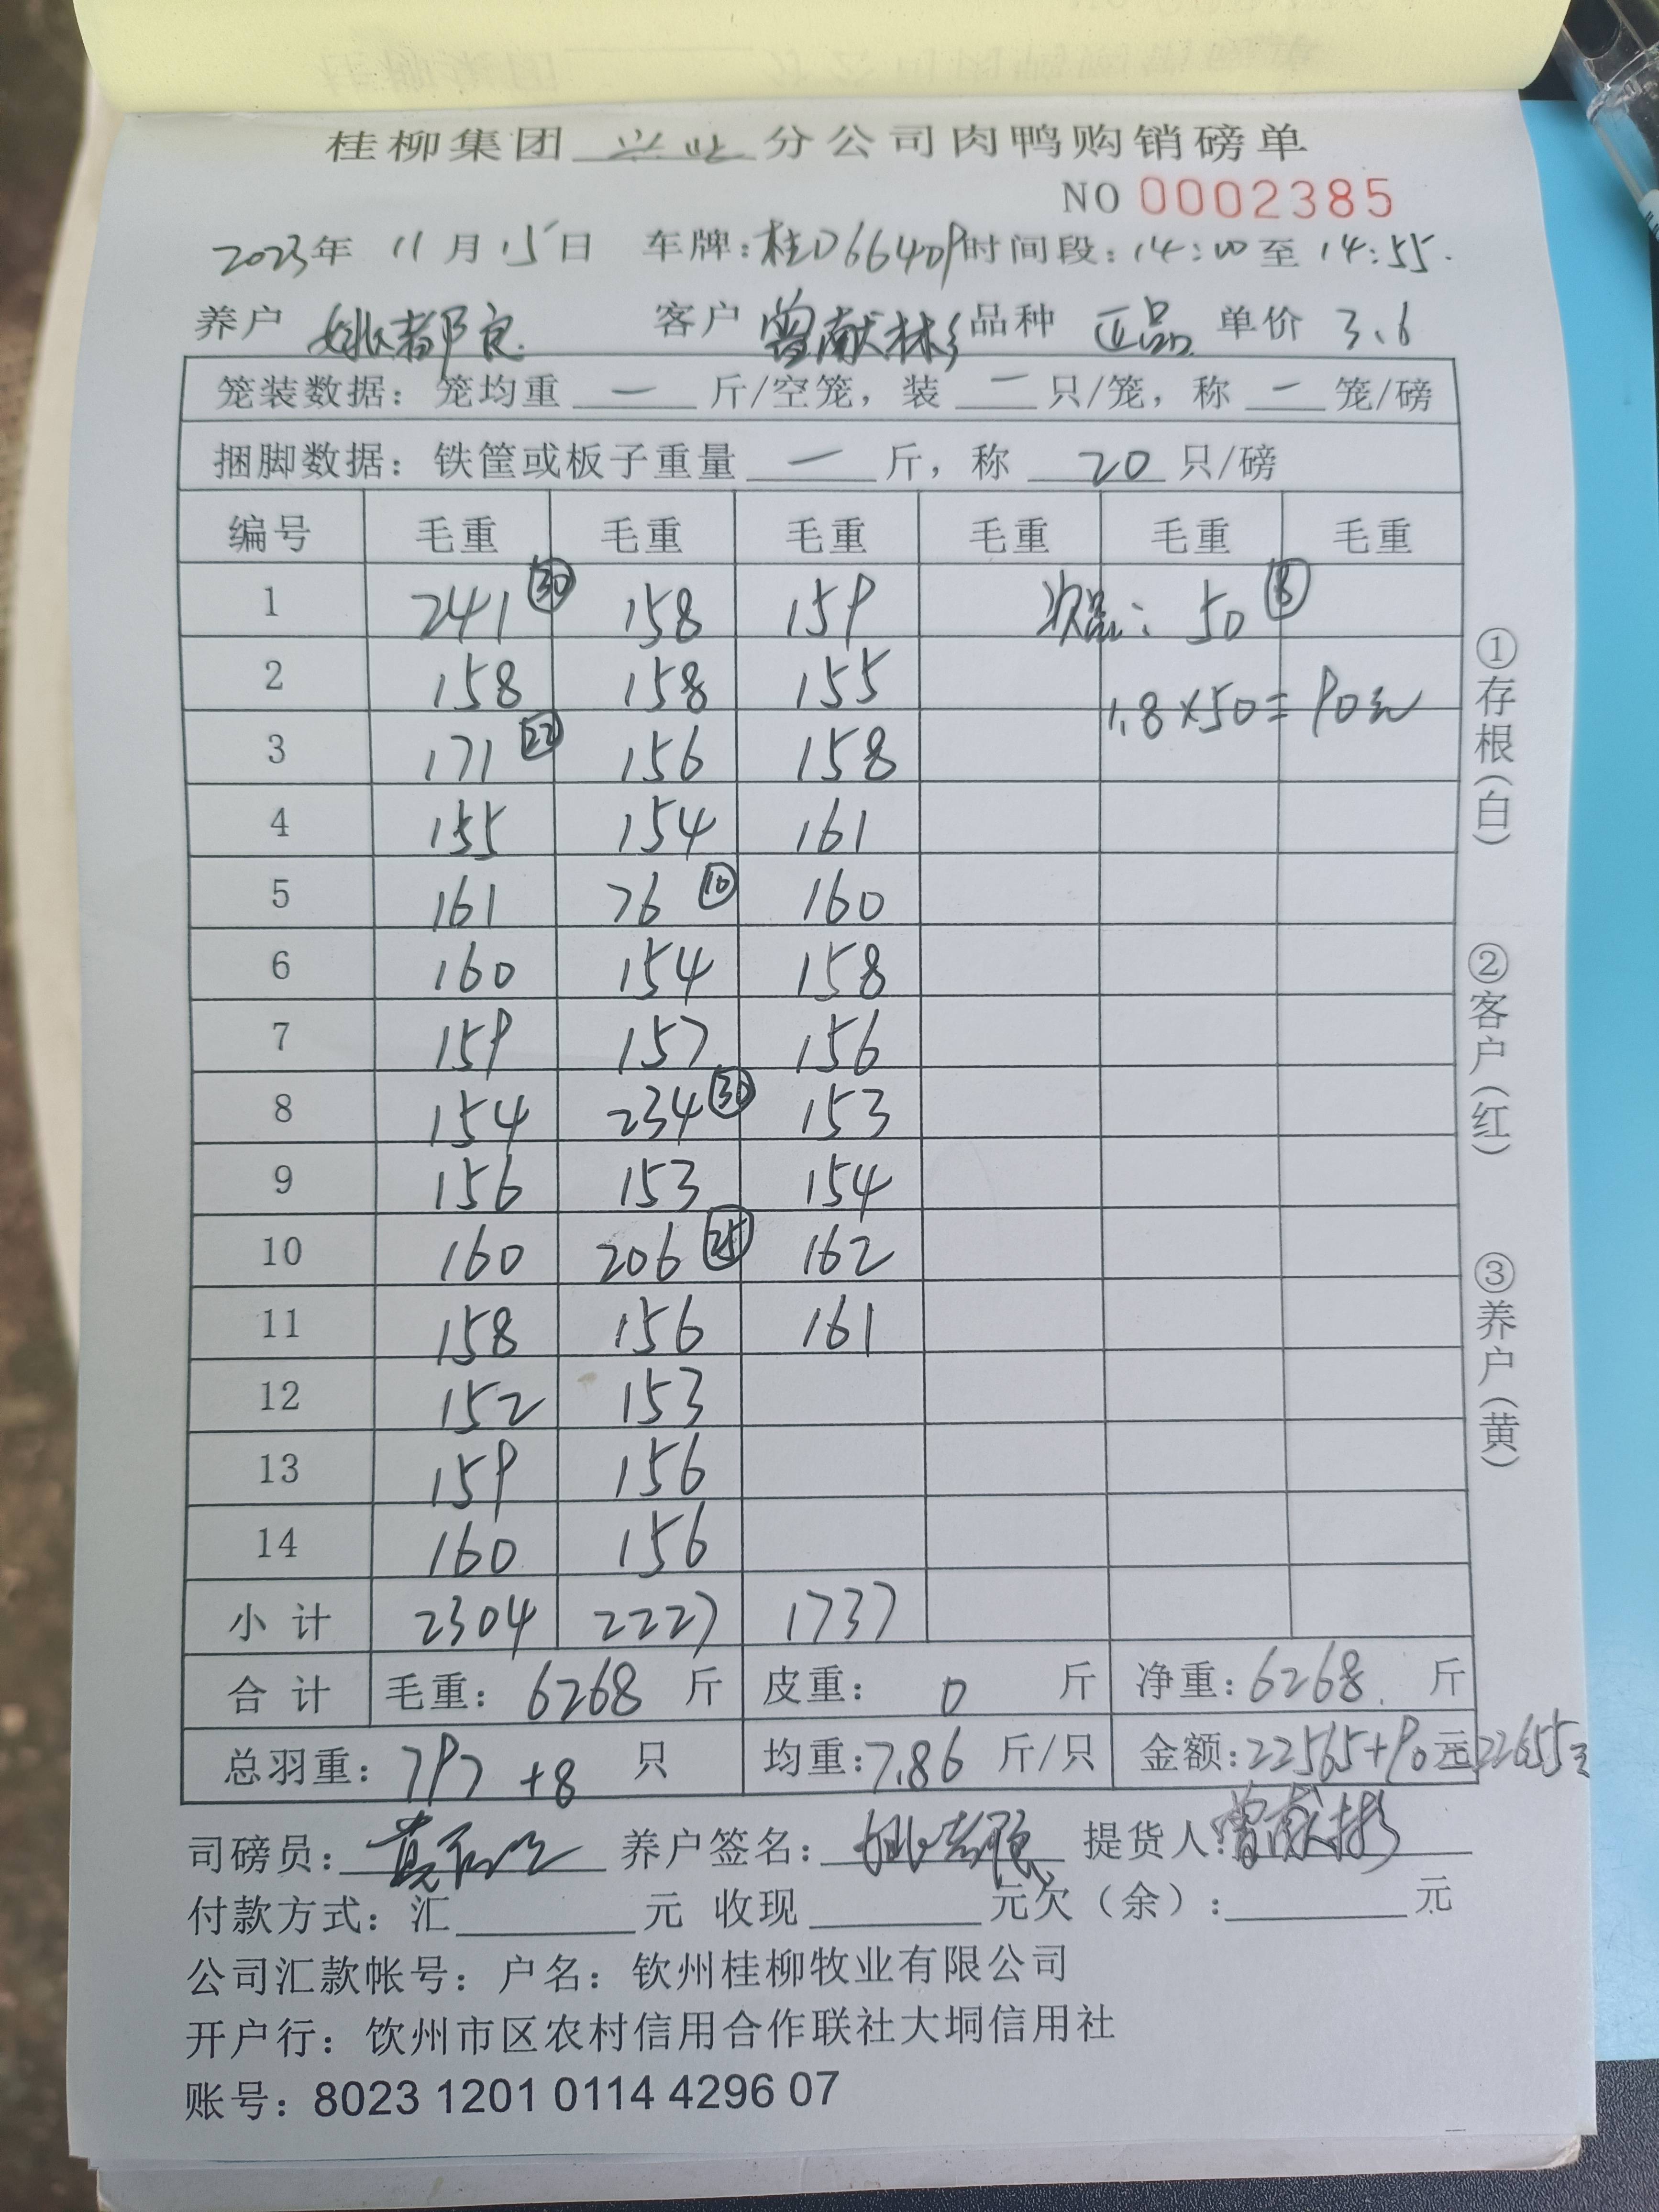 桂柳集团 兴业 分公司肉鸭购销磅单
NO 0002385
2023年 11月15日 车牌:桂D6640P 时间段:14:00至14:55.
养户 姚都良 客户 曾献彬 品种 正品 单价 3.6
笼装数据:笼均重 一 斤/空笼,装 一 只/笼,称 一 笼/磅
捆脚数据:铁筐或板子重量 一 斤,称 20 只/磅
编号 毛重 毛重 毛重 毛重 毛重 毛重
1 241 30 158 159 次品: 50 8
2 158 158 155 1.8×50=90元
3 171 22 156 158
4 155 154 161
5 161 76 10 160
6 160 154 158
7 159 157 156
8 154 234 30 153
9 156 153 154
10 160 206 25 162
11 158 156 161
12 152 153
13 159 156
14 160 156
小计 2304 2227 1737
合计 毛重:6268 斤 皮重: 0 斤 净重:6268. 斤
总羽重:797+8 只 均重:7.86 斤/只 金额:22565+90元 22655元
司磅员: 养户签名: 提货人:曾献彬
付款方式:汇 元 收现 元欠(余): 元
公司汇款帐号:户名:钦州桂柳牧业有限公司
开户行:饮州市区农村信用合作联社大垌信用社
账号:8023 1201 0114 4296 07
①存根(白)
②客户(红)
③养户(黄)